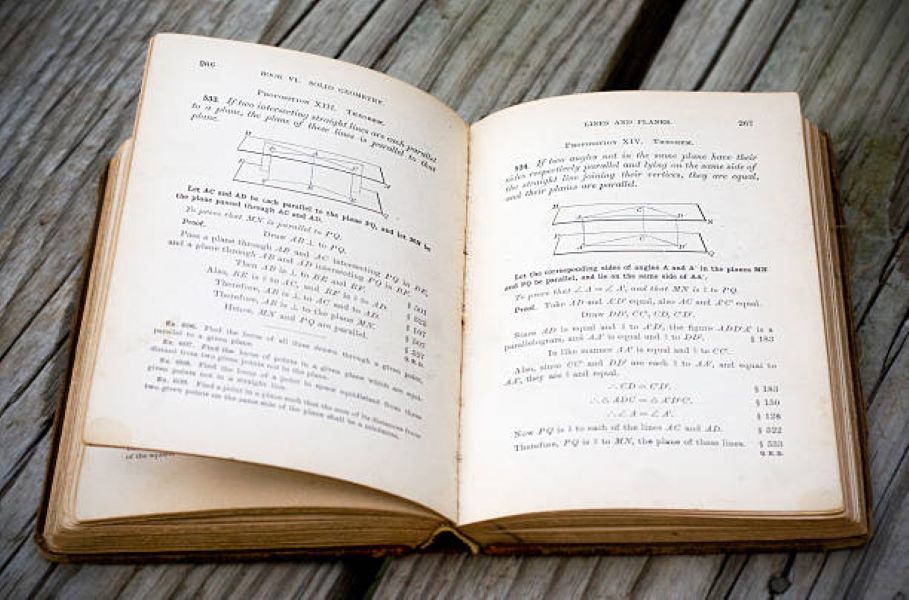 266
BOOK VI. SOLID GEOMETRY.
PROPOSITION XIII. THEOREM.
533. If two intersecting straight lines are each parallel
to a plane, the plane of these lines is parallel to that
plane.
Let AC and AD be each parallel to the plane PQ, and let MN be
the plane passed through AC and AD.
To prove that MN is parallel to PQ.
Proof.
Draw AB ⊥ to PQ.
Pass a plane through AB and AC intersecting PQ in BE,
and a plane through AB and AD intersecting PQ in BF.
Then AB is ⊥ to BE and BF.
§ 501
Also, BE is ∥ to AC, and BF is ∥ to AD.
Therefore, AB is ⊥ to AC and to AD.
§ 107
Therefore, AB is ⊥ to the plane MN.
§ 507
Hence, MN and PQ are parallel.
§ 527
Q.E.D.
Find the locus of all lines drawn through a given point,
parallel to a given plane.
Find the locus of points in a given plane which are equidistant from two given points not in the plane.
Find the locus of a point in space equidistant from three
given points not in a straight line.
Find a point in a plane such that the sum of its distances from
two given points on the same side of the plane shall be a minimum.
of the
LINES AND PLANES.
267
PROPOSITION XIV. THEOREM.
534. If two angles not in the same plane have their
sides respectively parallel and lying on the same side of
the straight line joining their vertices, they are equal,
and their planes are parallel.
M
C
A
D
N
P
C'
A'
D'
Q
Let the corresponding sides of angles A and A' in the planes MN
and PQ be parallel, and lie on the same side of AA'.
To prove that ∠A = ∠A', and that MN is ∥ to PQ.
Proof. Take AD and A'D' equal, also AC and A'C' equal.
Draw DD', CC', CD, C'D'.
Since AD is equal and ∥ to A'D', the figure ADD'A' is a
parallelogram, and AA' is equal and ∥ to DD'.
§ 183
In like manner AA' is equal and ∥ to CC'.
Also, since CC' and DD' are each ∥ to AA', and equal to
AA', they are ∥ and equal.
∴ CD = C'D'.
§ 183
∴ △ ADC = △ A'D'C'.
§ 150
∴ ∠A = ∠A'.
§ 128
Now PQ is ∥ to each of the lines AC and AD.
§ 522
Therefore, PQ is ∥ to MN, the plane of those lines.
§ 533
Q.E.D.